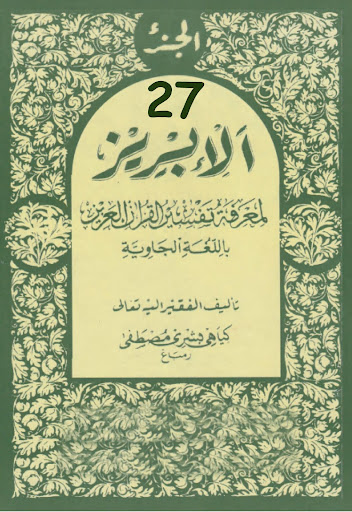 الجزء
27
الإبريز
لمعرفة تفسير القرآن العزيز
باللغة الجاوية
تأليف الفقير اليه تعالى
كياهي بشري مصطفى
رمباغ